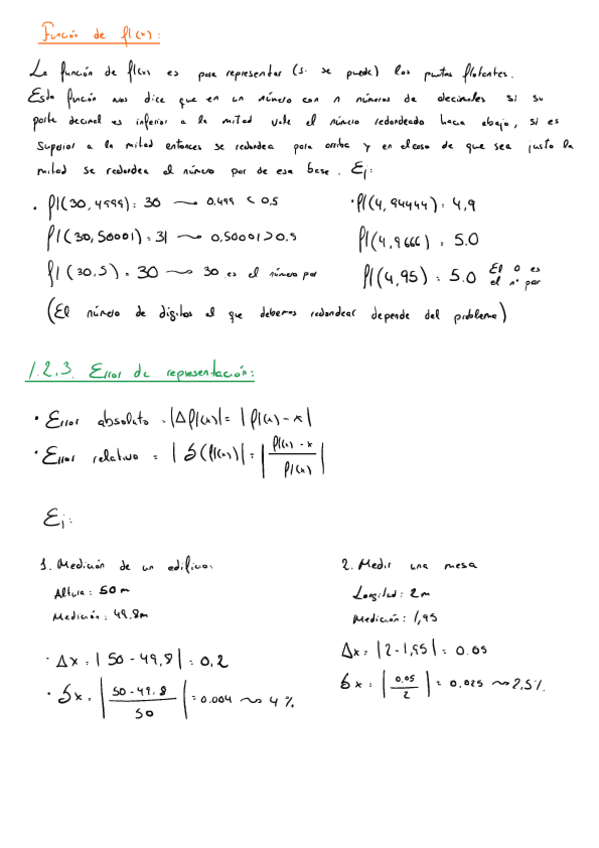 Función de fl(x):
La función de fl(x) es para representar (si se puede) los puntos flotantes.
Esta función nos dice que en un número con n números de decimales si su
parte decimal es inferior a la mitad vale el número redondeado hacia abajo, si es
superior a la mitad entonces se redondea para arriba y en el caso de que sea justo la
mitad se redondea al número par de esa base. Ej:
· fl(30,4999): 30 ⟿ 0.499 < 0.5
· fl(4,94444): 4,9
fl(30,50001): 31 ⟿ 0,50001 > 0,5
fl(4,9666): 5.0
fl(30,5) = 30 ⟿ 30 es el número par
fl(4,95) : 5.0 El 0 es
el nº par
(El número de dígitos al que debemos redondear depende del problema)
1.2.3. Error de representación:
· Error absoluto = |Δfl(x)| = |fl(x) - x|
· Error relativo = |δ(fl(x))| = |fl(x) - x / fl(x)|
Ej:
1. Medición de un edificio:
Altura: 50 m
Medición: 49.8m
· Δx = |50 - 49,8| = 0,2
· δx = |50 - 49,8 / 50| = 0.004 ⟿ 4 %
2. Medir una mesa
Longitud: 2m
Medición: 1,95
Δx = |2 - 1,95| = 0.05
δx = |0,05 / 2| = 0,025 ⟿ 2,5%